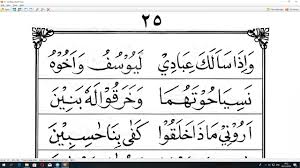 ٢٥
وَاِذَا سَاَلَكَ عِبَادِيْ لَيُوْسُفُ وَاَخُوْهُ
نَسِيَا حُوْتَهُمَا وَخَرَقُوْا لَهُ بَنِيْنَ
اَرُوْنِيْ مَاذَا خَلَقُوْا كَفٰى بِنَا حٰسِبِيْنَ